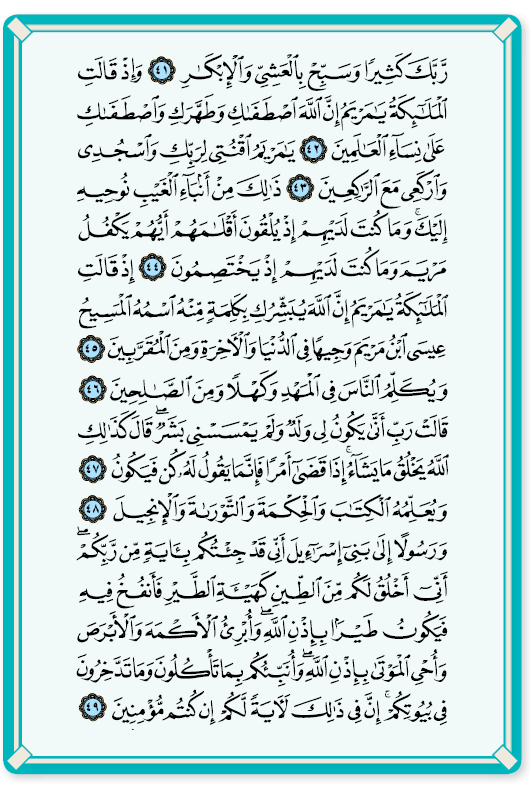 رَّبَّكَ كَثِيرًا وَسَبِّحْ بِالْعَشِيِّ وَالْإِبْكَارِ ٤١ وَإِذْ قَالَتِ
الْمَلَائِكَةُ يَا مَرْيَمُ إِنَّ اللَّهَ اصْطَفَاكِ وَطَهَّرَكِ وَاصْطَفَاكِ
عَلَىٰ نِسَاءِ الْعَالَمِينَ ٤٢ يَا مَرْيَمُ اقْنُتِي لِرَبِّكِ وَاسْجُدِي
وَارْكَعِي مَعَ الرَّاكِعِينَ ٤٣ ذَٰلِكَ مِنْ أَنبَاءِ الْغَيْبِ نُوحِيهِ
إِلَيْكَ ۚ وَمَا كُنتَ لَدَيْهِمْ إِذْ يُلْقُونَ أَقْلَامَهُمْ أَيُّهُمْ يَكْفُلُ
مَرْيَمَ وَمَا كُنتَ لَدَيْهِمْ إِذْ يَخْتَصِمُونَ ٤٤ إِذْ قَالَتِ
الْمَلَائِكَةُ يَا مَرْيَمُ إِنَّ اللَّهَ يُبَشِّرُكِ بِكَلِمَةٍ مِّنْهُ اسْمُهُ الْمَسِيحُ
عِيسَى ابْنُ مَرْيَمَ وَجِيهًا فِي الدُّنْيَا وَالْآخِرَةِ وَمِنَ الْمُقَرَّبِينَ ٤٥
وَيُكَلِّمُ النَّاسَ فِي الْمَهْدِ وَكَهْلًا وَمِنَ الصَّالِحِينَ ٤٦
قَالَتْ رَبِّ أَنَّىٰ يَكُونُ لِي وَلَدٌ وَلَمْ يَمْسَسْنِي بَشَرٌ ۖ قَالَ كَذَٰلِكِ
اللَّهُ يَخْلُقُ مَا يَشَاءُ ۚ إِذَا قَضَىٰ أَمْرًا فَإِنَّمَا يَقُولُ لَهُ كُن فَيَكُونُ ٤٧
وَيُعَلِّمُهُ الْكِتَابَ وَالْحِكْمَةَ وَالتَّوْرَاةَ وَالْإِنجِيلَ ٤٨
وَرَسُولًا إِلَىٰ بَنِي إِسْرَائِيلَ أَنِّي قَدْ جِئْتُكُم بِآيَةٍ مِّن رَّبِّكُمْ ۖ
أَنِّي أَخْلُقُ لَكُم مِّنَ الطِّينِ كَهَيْئَةِ الطَّيْرِ فَأَنفُخُ فِيهِ
فَيَكُونُ طَيْرًا بِإِذْنِ اللَّهِ ۖ وَأُبْرِئُ الْأَكْمَهَ وَالْأَبْرَصَ
وَأُحْيِي الْمَوْتَىٰ بِإِذْنِ اللَّهِ ۖ وَأُنَبِّئُكُم بِمَا تَأْكُلُونَ وَمَا تَدَّخِرُونَ
فِي بُيُوتِكُمْ ۚ إِنَّ فِي ذَٰلِكَ لَآيَةً لَّكُمْ إِن كُنتُم مُّؤْمِنِينَ ٤٩